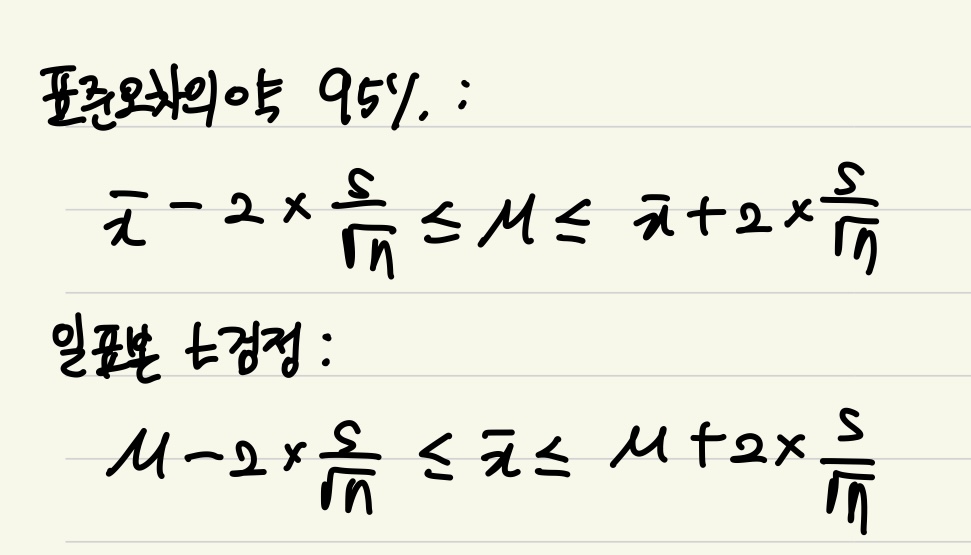 표준오차의 약 95% :
x̄ - 2 × s/√n ≤ μ ≤ x̄ + 2 × s/√n
일표본 t검정 :
μ - 2 × s/√n ≤ x̄ ≤ μ + 2 × s/√n